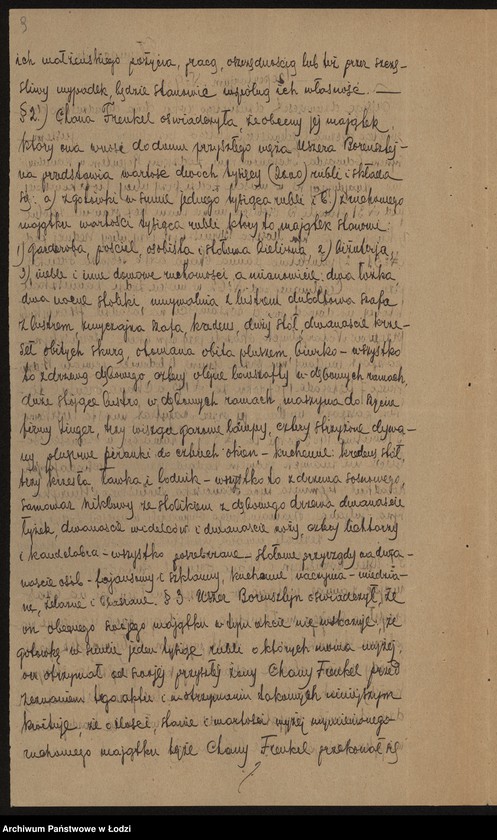 9
ich małżeńskiego pożycia, pracą, oszczędnością lub też przez szczę-
śliwy wypadek, będzie stanowić wspólną ich własność. —
§ 2.) Chana Frenkel oświadczyła, że obecny jej majątek,
który ona wnosi do domu przyszłego męża Uszera Borensztej-
na przedstawia wartość dwóch tysięcy (2000) rubli i składa
się: a) z gotówki w sumie jednego tysiąca rubli i b) z ruchomego
majątku wartości tysiąca rubli, który to majątek stanowi:
1) garderoba, pościel, osobista i stołowa bielizna, 2) biżuterja,
3) meble i inne domowe ruchomości, a mianowicie: dwa łóżka,
dwa nocne stoliki, umywalnia z lustrem dubeltowa szafa
z lustrem zwyczajna szafa, kredens, duży stół, dwanaście krze-
seł obitych skórą, otomana obita pluszem, biurko – wszystko
to z drzewa dębowego, cztery olejne landszafty w dębowych ramach,
duże stojące lustro, w dębowych ramach, maszyna do szycia
firmy Singer, trzy wiszące gazowe lampy, cztery strzyżone dywa-
ny, pluszowe firanki do czterech okien – kuchenne: kredens stół,
trzy krzesła, ławka, i lodnik – wszystko to z drzewa sosnowego,
samowar niklowy ze stolikiem z dębowego drzewa dwanaście
łyżek, dwanaście widelców i dwanaście noży, cztery lichtarzy
i kandelabra – wszystko posrebrzane – stołowe przyrządy na dwa-
naście osób – fajansowy i szklanny, kuchenne naczynia – miedzia-
ne, żelazne i blaszane. § 3. Uszer Borensztejn oświadczył, że
on obecnego swojego majątku w tym akcie nie wskazuje, że
gotówkę w sumie jeden tysiąc rubli o których mowa wyżej,
on otrzymał od swojej przyszłej żony Chany Frenkel przed
zeznaniem tego aktu i z otrzymania takowych niniejszym
kwituje, że o ilości, stanie i wartości wyżej wymienionego
ruchomego majątku tejże Chany Frenkel przekonał się
Archiwum Państwowe w Łodzi